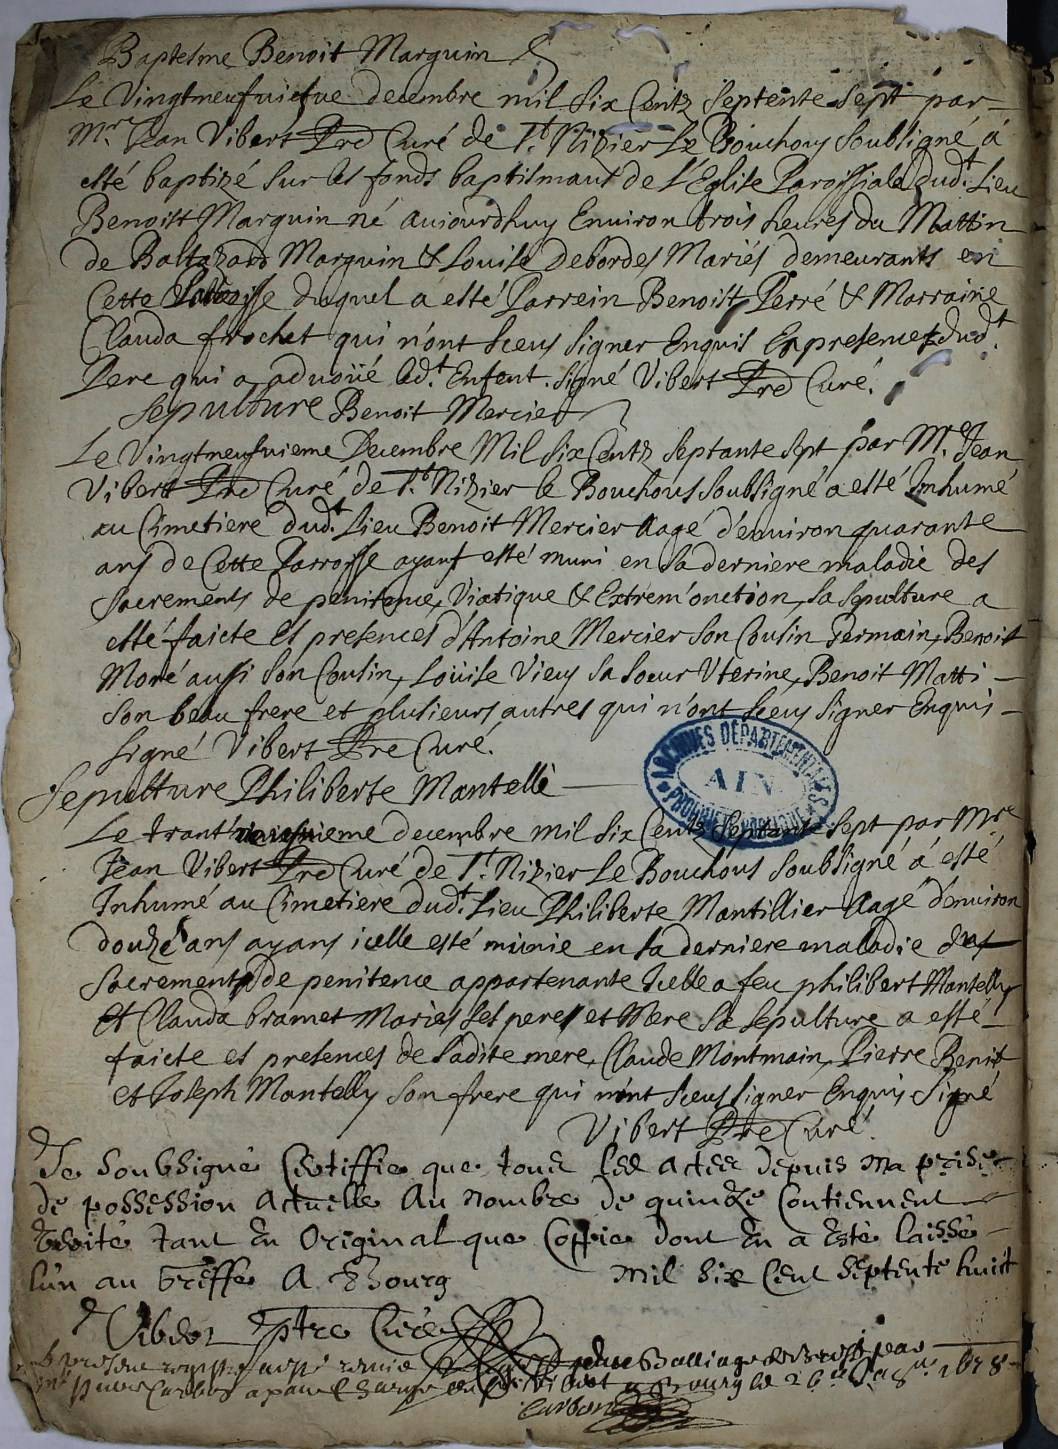 Baptesme Benoit Marguin
Le Vingtneufuiesme decembre mil six Centz septente sept par
Mre Jean Vibert Pre Curé de St. Nizier Le Bouchoux soubsigné a
esté baptizé sur les fonds baptismaux de l'Eglise Paroissiale dudt. Lieu
Benoist Marguin né aujourdhuy Environ trois heures du Mattin
de Baltazard Marguin & Louise Debordes Mariés demeurants en
Cette Parroisse duquel a esté Parrein Benoist Perré & Marraine
Clauda frochet qui n'ont sceus signer Enquis En presences dudt.
Pere qui a aduoüé ledt. Enfent. signé Vibert Pre Curé.
Sepulture Benoit Mercier
Le Vingtneufuieme Decembre Mil six Centz septante sept par Mre. Jean
Vibert Pre Curé de St. Nizier le Bouchous soubsigné a esté Inhumé
au Cimetiere dudt. Lieu Benoit Mercier aagé d'enuiron quarante
ans de Cette Parroisse ayant esté muni en sa derniere maladie des
sacrements de penitence, Viatique & Extrem'onction, sa sepulture a
esté faicte es presences d'Antoine Mercier son Cousin germain, Benoit
Moré aussi son Cousin, Loüise Vieux sa soeur Vterine, Benoit Matti
son beau frere et plusieurs autres qui n'ont sceus signer Enquis
signé Vibert Pre Curé.
Sepulture Philiberte Mantellè
ARCHIVES DEPARTEMENTALES
AIN
PROPRIETE PUBLIQUE
Le trant' decembre mil six Centz Septante sept par Mre
Jean Vibert Pre Curé de St. Nizier Le Bouchous soubsigné a esté
Inhumé au Cimetiere dudt. Lieu Philiberte Mantillier aagé d'enuiron
douze ans ayans icelle esté munie en sa derniere maladie des
sacrements de penitence appartenante Icelle a feu philibert Mantelly
Et Clauda bramet Mariés ses peres et Mere sa sepulture a esté
faicte es presences de sadite mere, Claude Montmain, Pierre Benoit
et Joseph Mantelly son frere qui n'ont sceus signer Enquis signé
Vibert Pre Curé.
Je soubsigné Certiffie que tous les actes depuis ma prise
de possession actuelle au nombre de quinze Contiennent
verité tant En Original que Coppie dont En a Esté laissé
lun au Greffe A Bourg mil six Cent septente huict
Vibert ptre Curé
Le presme remise Balliage de par
Bourg le 26 1678
Carbon